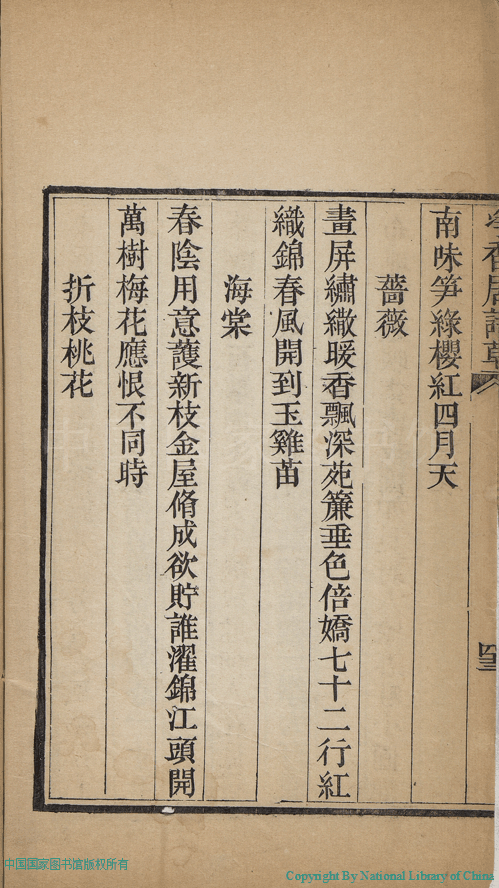 南味笋綠櫻紅四月天
薔薇
畫屏繡繖暖香飄深苑簾垂色倍嬌七十二行紅
織錦春風開到玉雞苗
海棠
春陰用意護新枝金屋脩成欲貯誰濯錦江頭開
萬樹梅花應恨不同時
折枝桃花
中国国家图书馆版权所有
Copyright By National Library of China